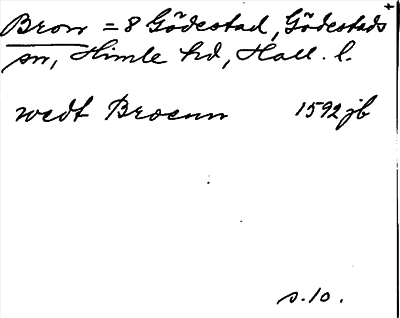 Bron = 8 Gödestad, Gödestads
sn, Himle hd, Hall. l.
wedt Broenn 1592 jb
s. 10.